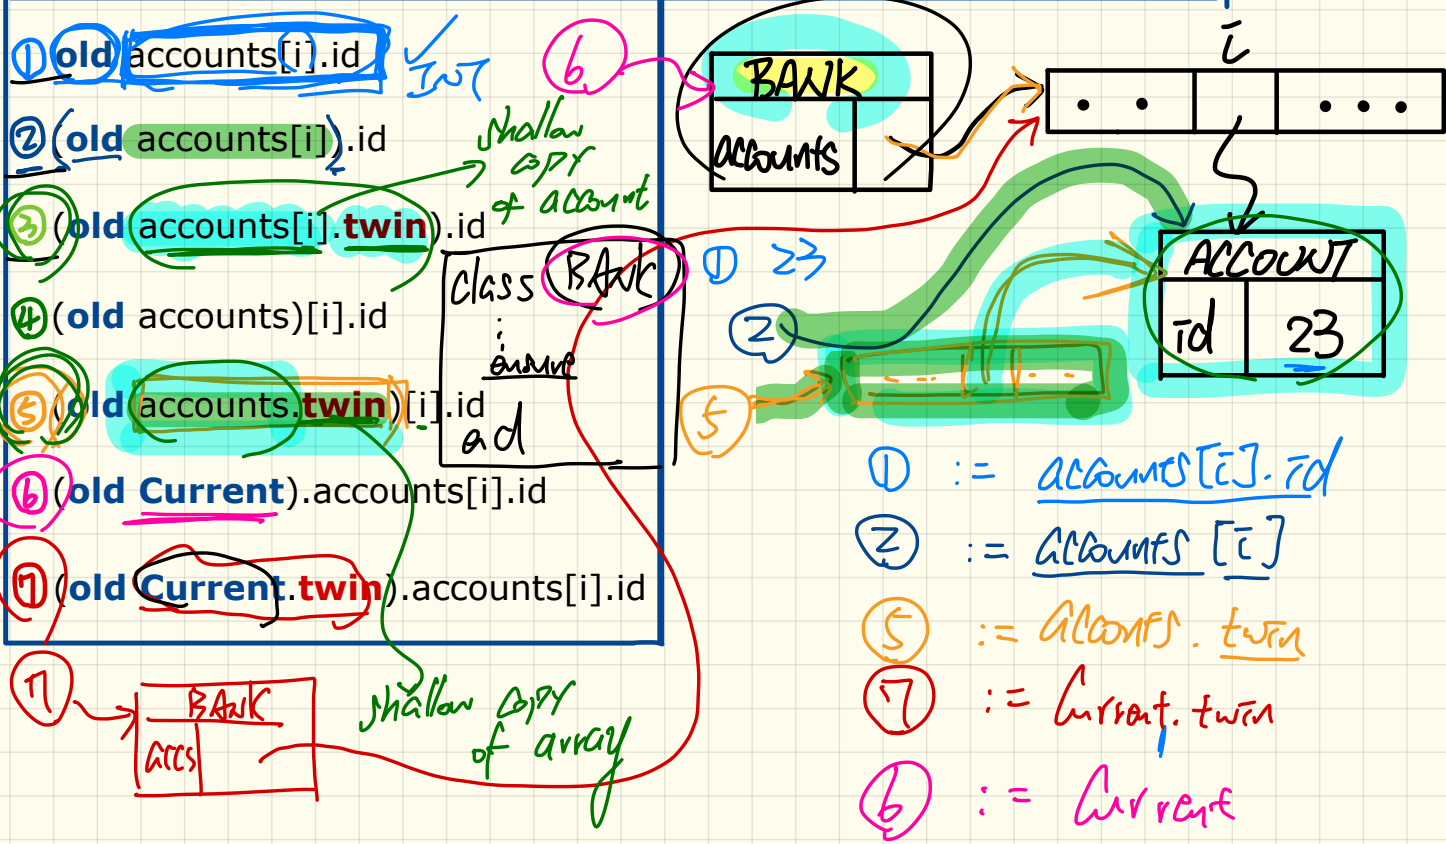 ① old accounts[i].id
✓ INT
② (old accounts[i]).id
③ (old accounts[i].twin).id
④ (old accounts)[i].id
⑤ (old accounts.twin)[i].id
⑥ (old Current).accounts[i].id
⑦ (old Current.twin).accounts[i].id
shallow
copy
of account
class BANK
:
ensure
end
⑥
BANK
accounts
i
• •
• • •
ACCOUNT
id 23
① 23
②
⑤
① := accounts[i].id
② := accounts [i]
⑤ := accounts.twin
⑦ := Current.twin
⑥ := Current
⑦
BANK
accs
shallow copy
of array